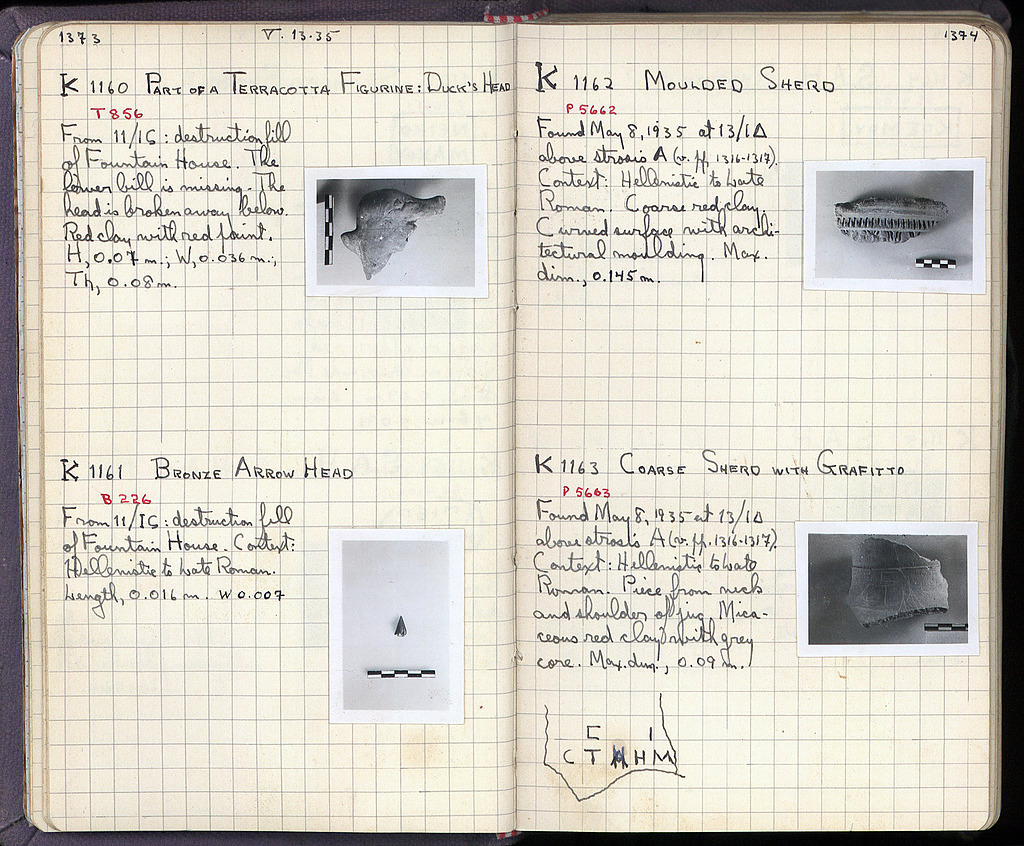 1373
V. 13.35
K 1160 PART OF A TERRACOTTA FIGURINE: DUCK'S HEAD
T 856
From 11/ΙϚ: destruction fill
of Fountain House. The
lower bill is missing. The
head is broken away below.
Red clay with red paint.
H, 0.07 m.; W, 0.036 m.;
Th, 0.08 m.
K 1161 BRONZE ARROW HEAD
B 226
From 11/ΙϚ: destruction fill
of Fountain House. Context:
Hellenistic to Late Roman.
Length, 0.016 m. W 0.007
1374
K 1162 MOULDED SHERD
P 5662
Found May 8, 1935 at 13/ΙΔ
above strosis A (v. pp. 1316-1317).
Context: Hellenistic to Late
Roman. Coarse red clay.
Curved surface with archi-
tectural moulding. Max.
dim., 0.145 m.
K 1163 COARSE SHERD WITH GRAFITTO
P 5663
Found May 8, 1935 at 13/ΙΔ
above strosis A (v. pp. 1316-1317).
Context: Hellenistic to Late
Roman. Piece from neck
and shoulder of jug. Mica-
ceous red clay with grey
core. Max. dim., 0.09 m.
Ε Ι
C T H M